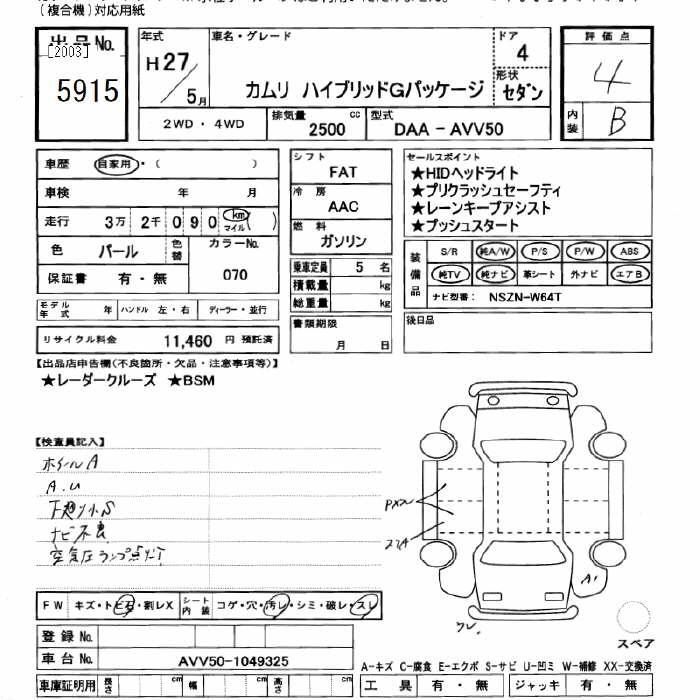 (複合機)対応用紙
出品No.
[2003]
5915
年式
H27/5月
車名・グレード
カムリ ハイブリッドGパッケージ
ドア
4
形状
セダン
評価点
4
内装
B
2WD・4WD
排気量
2500 cc
型式
DAA-AVV50
車歴 自家用・( )
車検 年 月
走行 3万 2千 090 km マイル ( )
色 パール 色替 カラーNo.
保証書 有・無 070
モデル年式 年 ハンドル 左・右 ディーラー・並行
リサイクル料金 11,460 円 預託済
シフト
FAT
冷房
AAC
燃料
ガソリン
乗車定員 5 名
積載量 kg
総重量 kg
書類期限
月 日
セールスポイント
★HIDヘッドライト
★プリクラッシュセーフティ
★レーンキープアシスト
★プッシュスタート
装備品
S/R 純A/W P/S P/W ABS
純TV 純ナビ 革シート 外ナビ エアB
ナビ型番: NSZN-W64T
後日品
【出品店申告欄(不良箇所・欠品・注意事項等)】
★レーダークルーズ ★BSM
【検査員記入】
ホイールA
A.U
下廻り小S
ナビ不良
空気圧ランプ点灯
A1
FW キズ・トビ石・割レX シート内装 コゲ・穴・汚レ・シミ・破レ・スレ
登録No.
車台No. AVV50-1049325
車庫証明用 長さ cm 幅 cm 高さ cm
スペア
A-キズ C-腐食 E-エクボ S-サビ U-凹ミ W-補修 XX-交換済
工具 有・無 ジャッキ 有・無